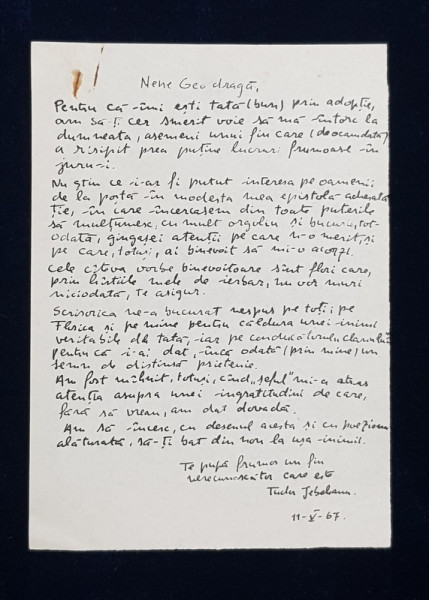 Nene Geo dragă,
Pentru că-îmi ești tată (bun) prin adopție,
am să-ți cer smerit voie să mă întorc la
dumneata, asemeni unui fiu care (deocamdată)
a risipit prea puține lucruri frumoase în
juru-i.
Nu știu ce i-ar fi putut interesa pe oamenii
de la poștă în modesta mea epistolă
ție, în care încercasem din toate puterile
să mulțumesc, cu mult orgoliu și bucurie, tot-
odată, gingașei atenții pe care n-o merit, și
pe care, totuși, ai binevoit să mi-o acorzi.
Cele câteva vorbe binevoitoare sînt flori care,
prin hîrtiile mele de ierbar, nu vor muri
niciodată, te asigur.
Scrisorica ne-a bucurat nespus pe toți: pe
Florica și pe mine pentru căldura unei inimi
veritabile de tată, iar pe conducătorul "clanului"
pentru că i-ai dat, încă odată (prin mine) un
semn de distinsă prietenie.
Am fost mâhnit, totuși, când "șeful" mi-a atras
atenția asupra unei ingratitudini de care,
fără să vreau, am dat dovadă.
Am să încerc, cu desenul acesta și cu poezioara
alăturată, să-ți bat din nou la ușa inimii.
Te pupă frumos un fiu
nerecunoscător care este
Tudor Jebeleanu
11-V-67.